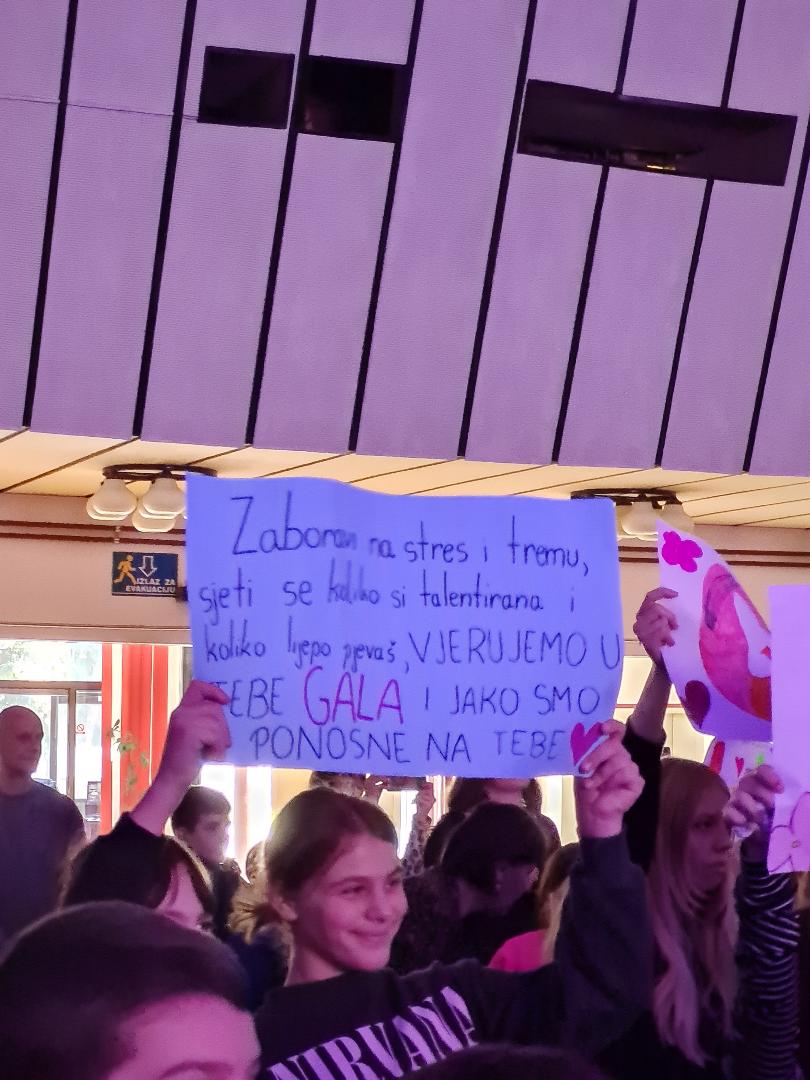 IZLAZ ZA
EVAKUACIJU
Zaboravi na stres i tremu,
sjeti se koliko si talentirana i
koliko lijepo pjevaš, VJERUJEMO U
TEBE GALA I JAKO SMO
PONOSNE NA TEBE
NIRVANA